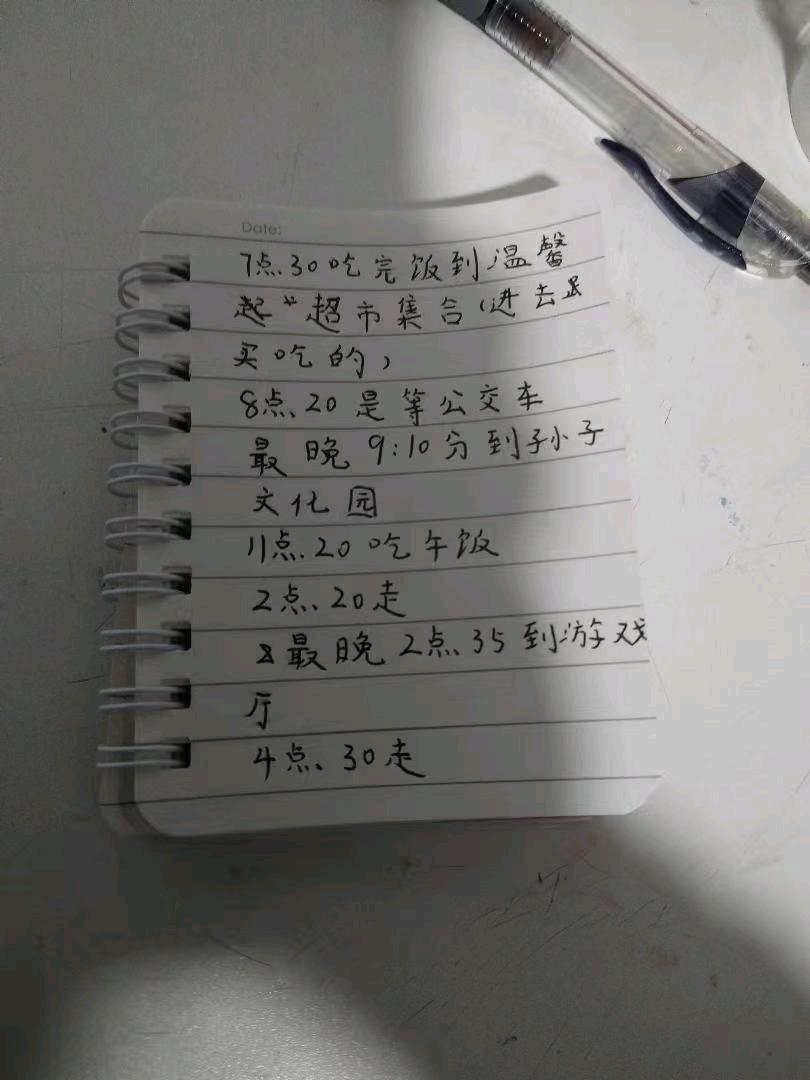 Date:
7点30吃完饭到温馨
起 超市集合(进去
买吃的)
8点20是等公交车
最晚9:10分到孙小子
文化园
11点20吃午饭
2点20走
最晚2点35到游戏
厅
4点30走